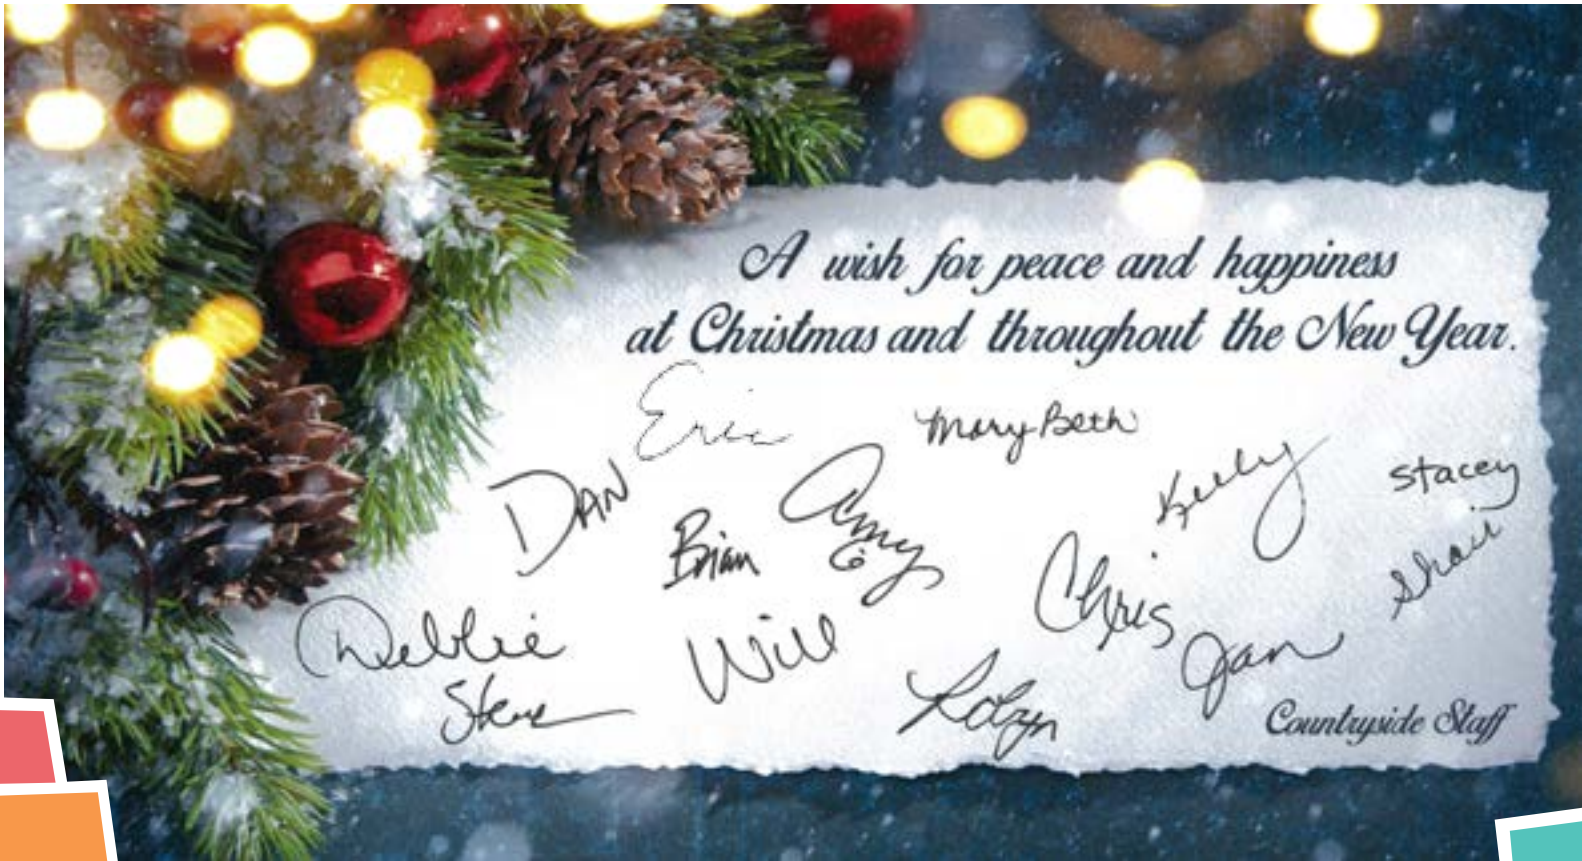 A wish for peace and happiness
at Christmas and throughout the New Year.
Eric
Mary Beth
DAN
Brian
Amy
Kelly
Stacey
Chris
Debbie
Will
Jan
Robyn
Countryside Staff